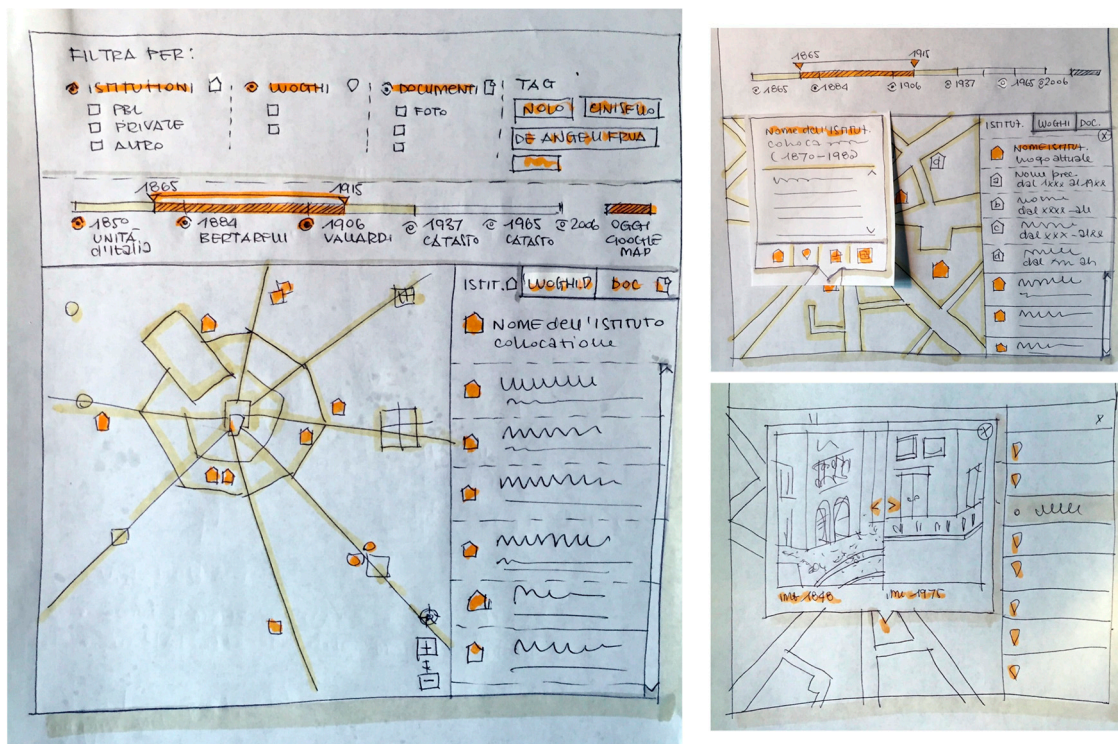 FILTRA PER:
ISTITUTIONI
PBL
PRIVATE
ALTRO
LUOGHI
DOCUMENTI
FOTO
TAG
NOLO
CINISELLO
DE ANGELI FRUA
1865
1915
1850
UNITÀ
d'Italia
1884
BERTARELLI
1906
VALLARDI
1937
CATASTO
1965
CATASTO
2006
OGGI
GOOGLE
MAP
ISTIT.
LUOGHI
DOC
NOME dell'ISTITUTO
collocatione
+
-
1865
1915
1865
1884
1906
1937
1965
2006
Nome dell'ISTITUT.
colloca
(1870-198
ISTITUT.
LUOGHI
DOC.
X
NOME ISTITUT.
luogo attuale
a
Nome prec.
dal 1xxx al 19xx
b
nome
dal xxx-al
c
dal xxx-alxx
d
dal
X
X
< >
1848
1975